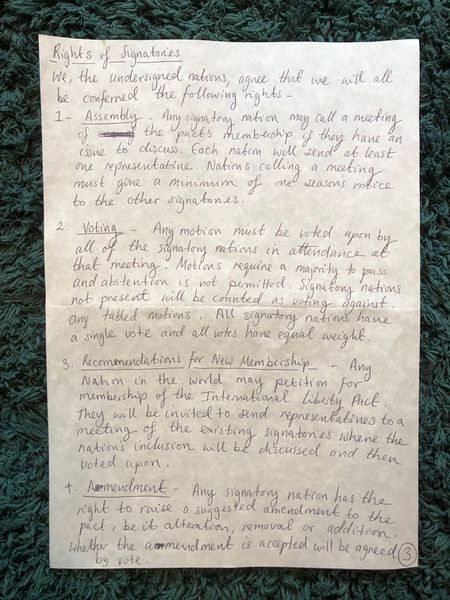 Rights of Signatories
We, the undersigned nations, agree that we will all
be conferred the following rights -
1- Assembly - Any signatory nation may call a meeting
of the pact's membership if they have an
issue to discuss. Each nation will send at least
one representative. Nations calling a meeting
must give a minimum of one seasons notice
to the other signatories.
2. Voting - Any motion must be voted upon by
all of the signatory nations in attendance at
that meeting. Motions require a majority to pass
and abstention is not permitted. Signatory nations
not present will be counted as voting against
any tabled motions. All signatory nations have
a single vote and all votes have equal weight.
3. Recommendations for New Membership - Any
Nation in the world may petition for
membership of the International Liberty Pact.
They will be invited to send representatives to a
meeting of the existing signatories where the
nations inclusion will be discussed and then
voted upon.
4. Amendment - Any signatory nation has the
right to raise a suggested amendment to the
pact, be it alteration, removal or addition.
Whether the amendment is accepted will be agreed
by vote.
3